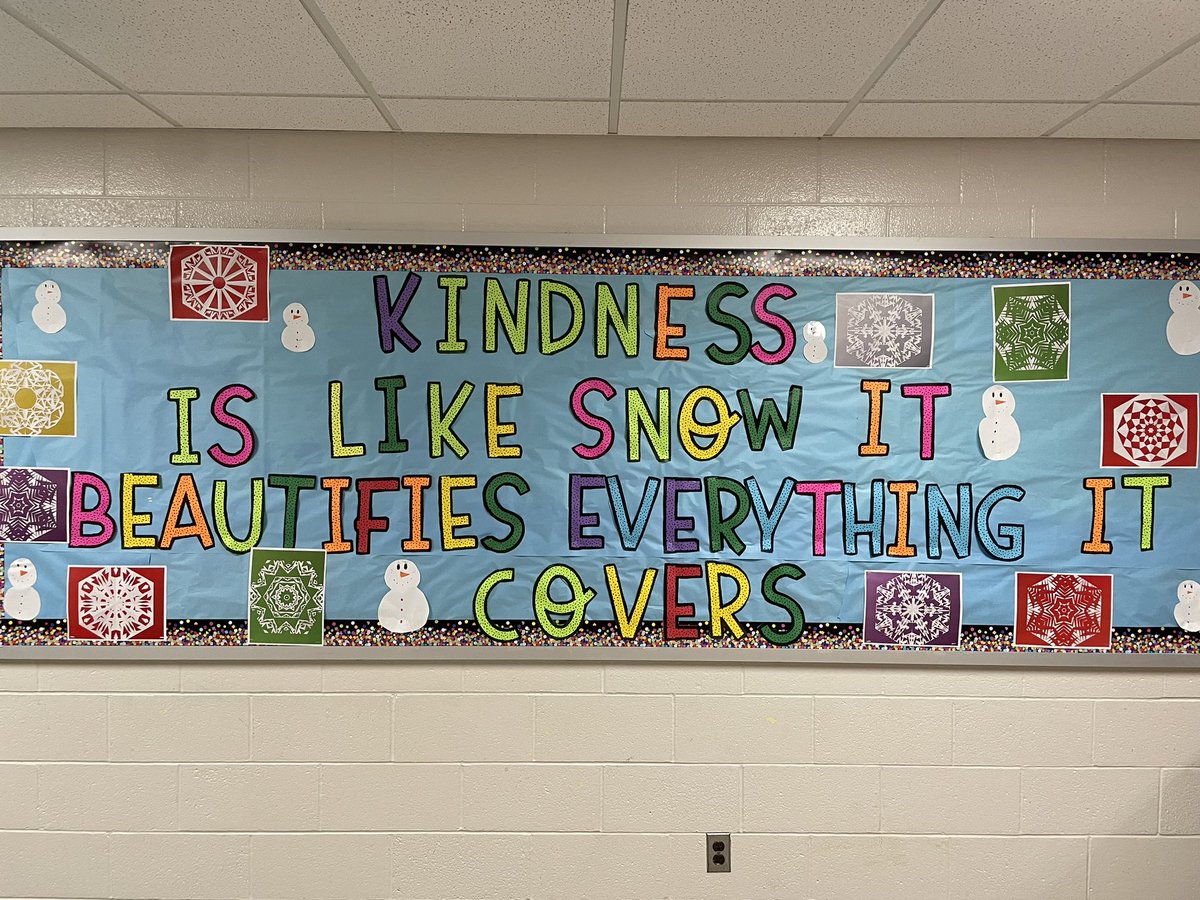 KINDNESS
IS LIKE SNOW IT
BEAUTIFIES EVERYTHING IT
COVERS